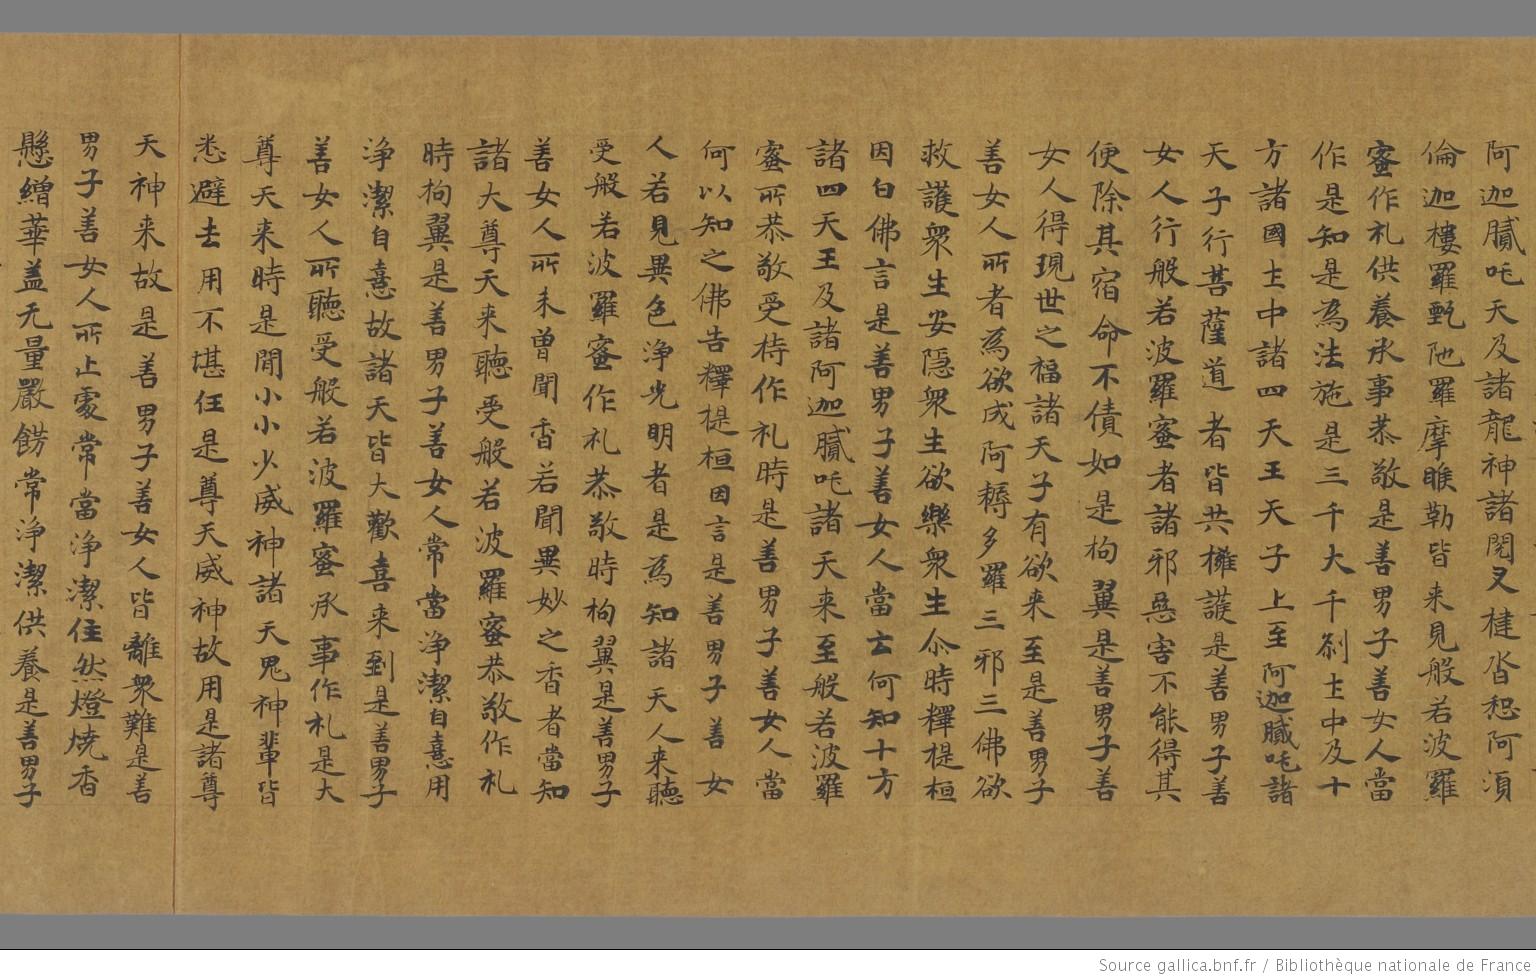 阿迦膩吒天及諸龍神諸閱叉揵沓惒阿須
倫迦樓羅甄陁羅摩睺勒皆来見般若波羅
蜜作礼供養承事恭敬是善男子善女人當
作是知是為法施是三千大千剎土中及十
方諸國土中諸四天王天子上至阿迦膩吒諸
天子行菩薩道者皆共擁護是善男子善
女人行般若波羅蜜者諸邪惡害不能得其
便除其宿命不償如是拘翼是善男子善
女人得現世之福諸天子有欲来至是善男子
善女人所者為欲成阿耨多羅三邪三佛欲
救護衆生安隱衆生欲樂衆生尒時釋提桓
因白佛言是善男子善女人當云何知十方
諸四天王及諸阿迦膩吒諸天来至般若波羅
蜜所恭敬受持作礼時是善男子善女人當
何以知之佛告釋提桓因言是善男子善女
人若見異色淨光明者是為知諸天人来聽
受般若波羅蜜作礼恭敬時拘翼是善男子
善女人所未曽聞香若聞異妙之香者當知
諸大尊天来聽受般若波羅蜜恭敬作礼
時拘翼是善男子善女人常當淨潔自憙用
淨潔自憙故諸天皆大歡喜来到是善男子
善女人所聽受般若波羅蜜承事作礼是大
尊天来時是間小小少威神諸天鬼神輩皆
悉避去用不堪任是尊天威神故用是諸尊
天神来故是善男子善女人皆離衆難是善
男子善女人所止處常當淨潔住然燈燒香
懸繒華盖无量嚴餝常淨潔供養是善男子